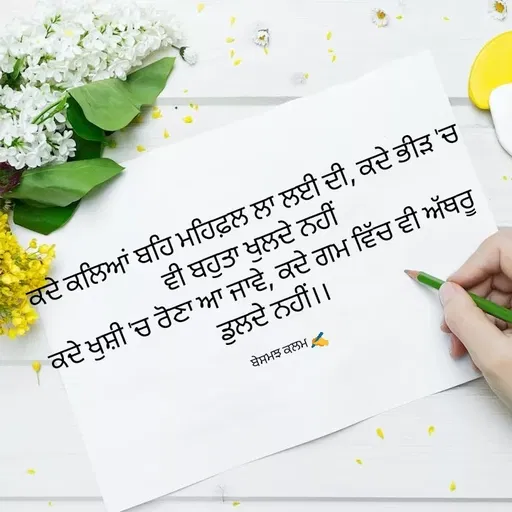 ਕਦੇ ਕਲਿਆਂ ਬਹਿ ਮਹਿਫ਼ਲ ਲਾ ਲਈ ਦੀ, ਕਦੇ ਭੀੜ 'ਚ
ਵੀ ਬਹੁਤਾ ਖੁਲਦੇ ਨਹੀਂ
ਕਦੇ ਖੁਸ਼ੀ 'ਚ ਰੋਣਾ ਆ ਜਾਵੇ, ਕਦੇ ਗਮ ਵਿੱਚ ਵੀ ਅੱਥਰੂ
ਡੁਲਦੇ ਨਹੀਂ।।
ਬੇਸਮਝ ਕਲਮ ✍️